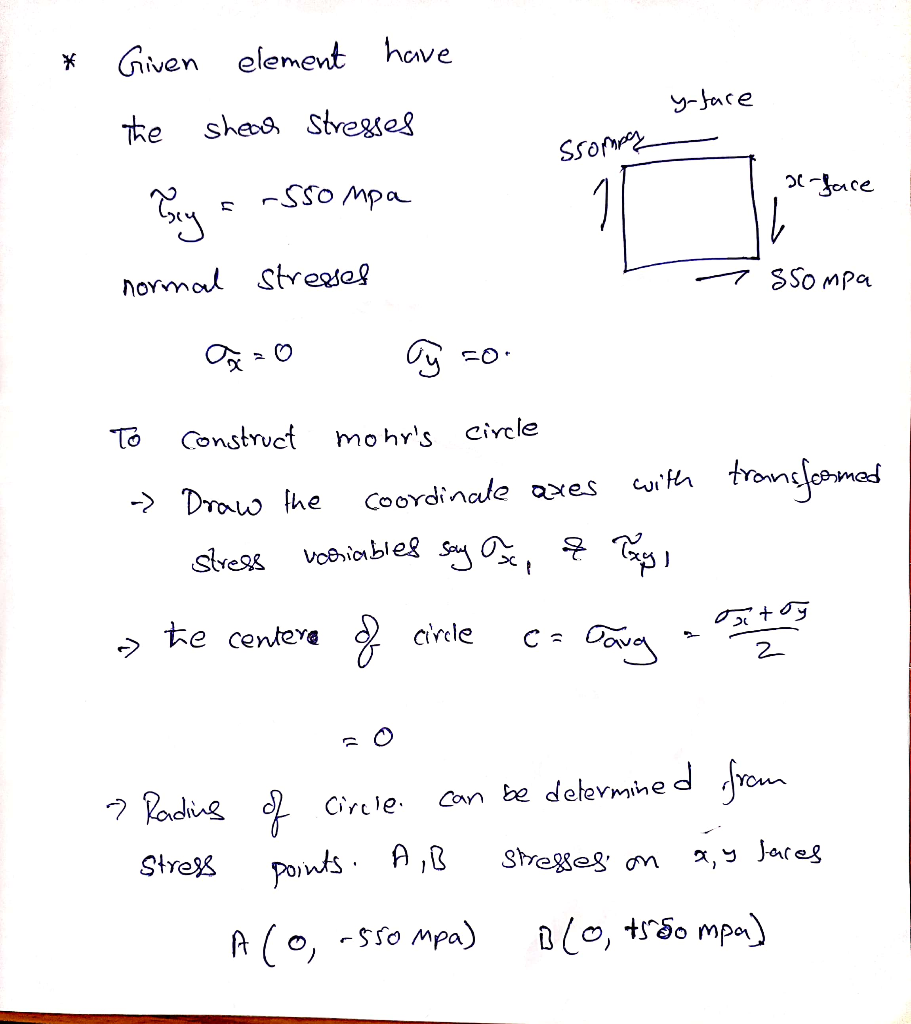 * Given element have
the shear stresses
y-face
550 MPa
x-face
τxy = -550 MPa
normal stresses
550 MPa
σx = 0 σy = 0.
To construct mohr's circle
→ Draw the coordinate axes with transformed
stress variables say σx1 & τxy1
→ the centere of circle C = σavg = (σx + σy)/2
= 0
→ Radius of circle. can be determined from
stress points. A,B stresses on x,y faces
A(0, -550 MPa) B(0, +550 MPa)